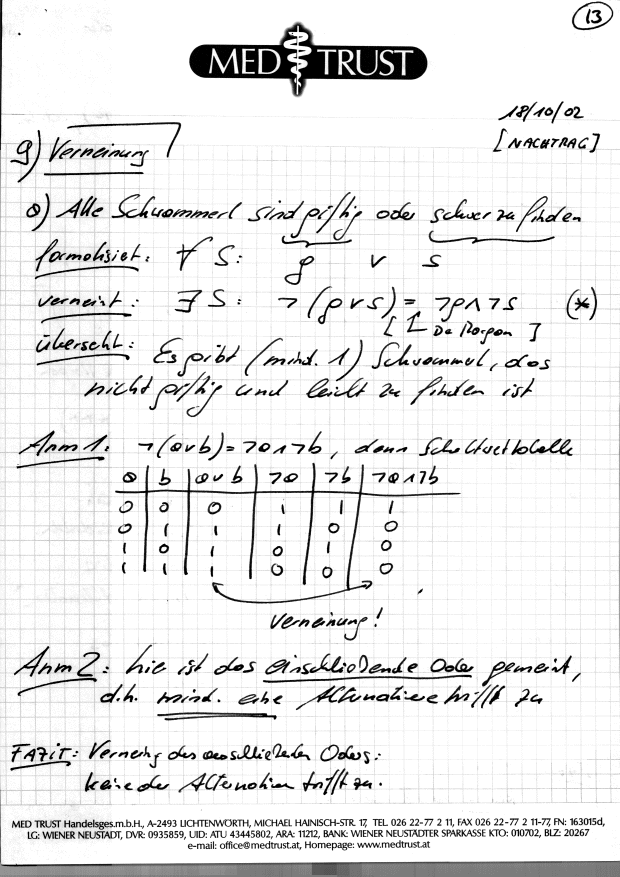 13
MED TRUST
18/10/02
[NACHTRAG]
9) Verneinung
a) Alle Schwammerl sind giftig oder schwer zu finden
formalisiert: ∀ S: g ∨ s
verneint: ∃ S: ¬(g∨s) = ¬g∧¬s (*)
[ ↑ De Morgan ]
übersetzt: Es gibt (mind. 1) Schwammerl, das
nicht giftig und leicht zu finden ist
Anm 1: ¬(a∨b) = ¬a∧¬b, denn Schaltwerttabelle
a | b | a∨b | ¬a | ¬b | ¬a∧¬b
0 | 0 | 0 | 1 | 1 | 1
0 | 1 | 1 | 1 | 0 | 0
1 | 0 | 1 | 0 | 1 | 0
1 | 1 | 1 | 0 | 0 | 0
Verneinung!
Anm 2: hie ist das einschließende Oder gemeint,
d.h. mind. eine Alternative trifft zu
FAZIT: Verneing des Oders:
keine der Alternativen trifft zu.
MED TRUST Handelsges.m.b.H., A-2493 LICHTENWÖRTH, MICHAEL HAINISCH-STR. 17, TEL. 026 22-77 2 11, FAX 026 22-77 2 11-77, FN: 163015d,
LG: WIENER NEUSTADT, DVR: 0935859, UID: ATU 43445802, ARA: 11212, BANK: WIENER NEUSTÄDTER SPARKASSE KTO: 010702, BLZ: 20267
e-mail: office@medtrust.at, Homepage: www.medtrust.at